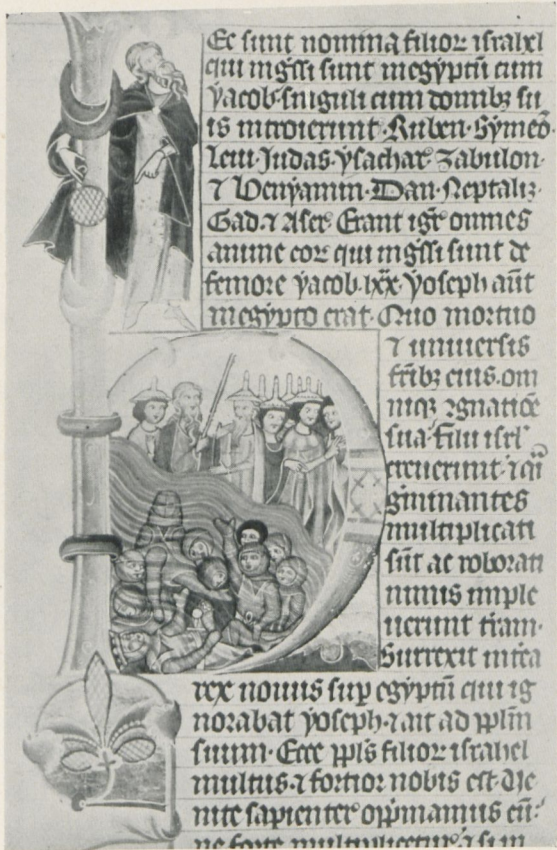 Ec sunt nomina filior israhel
qui ingssi sunt inegyptū cum
yacob·singuli cum domibz su
is introierunt·Ruben·Symeō·
leui·Judas·ysachar zabulon·
⁊ Benyamin·Dan·Neptali⁊
Gad·⁊ Aser· Erant igr̄ omnes
anime eor qui ingssi sunt de
femore yacob·lxx·yoseph aūt
inegypto erat· Quo mortuo
⁊ uniuersis
frībz eius·om
niqz ꝯgnatiōe
sua·filii isrl'
creuerunt·⁊ qͥ
gminantes
multiplicati
sūt ac roborati
nimis imple
uerunt trām·
Surrexit intēa
rex nouus sup egyptū qui ig
norabat yoseph·⁊ ait ad pplm
suum· Ecce ppls filior israhel
multus·⁊ fortior nobis est Ve
nite sapienter oppmamus eū·
ne forte multiplicetur ⁊ si in